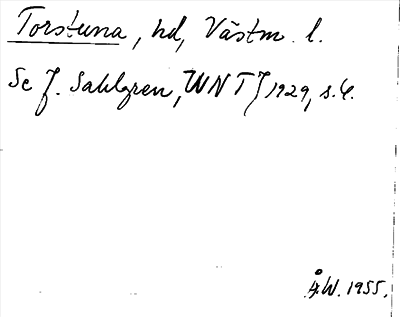 Torstuna, hd, Västm. l.
Se J. Sahlgren, UNT 1929, s. 4.
Å.W. 1955.